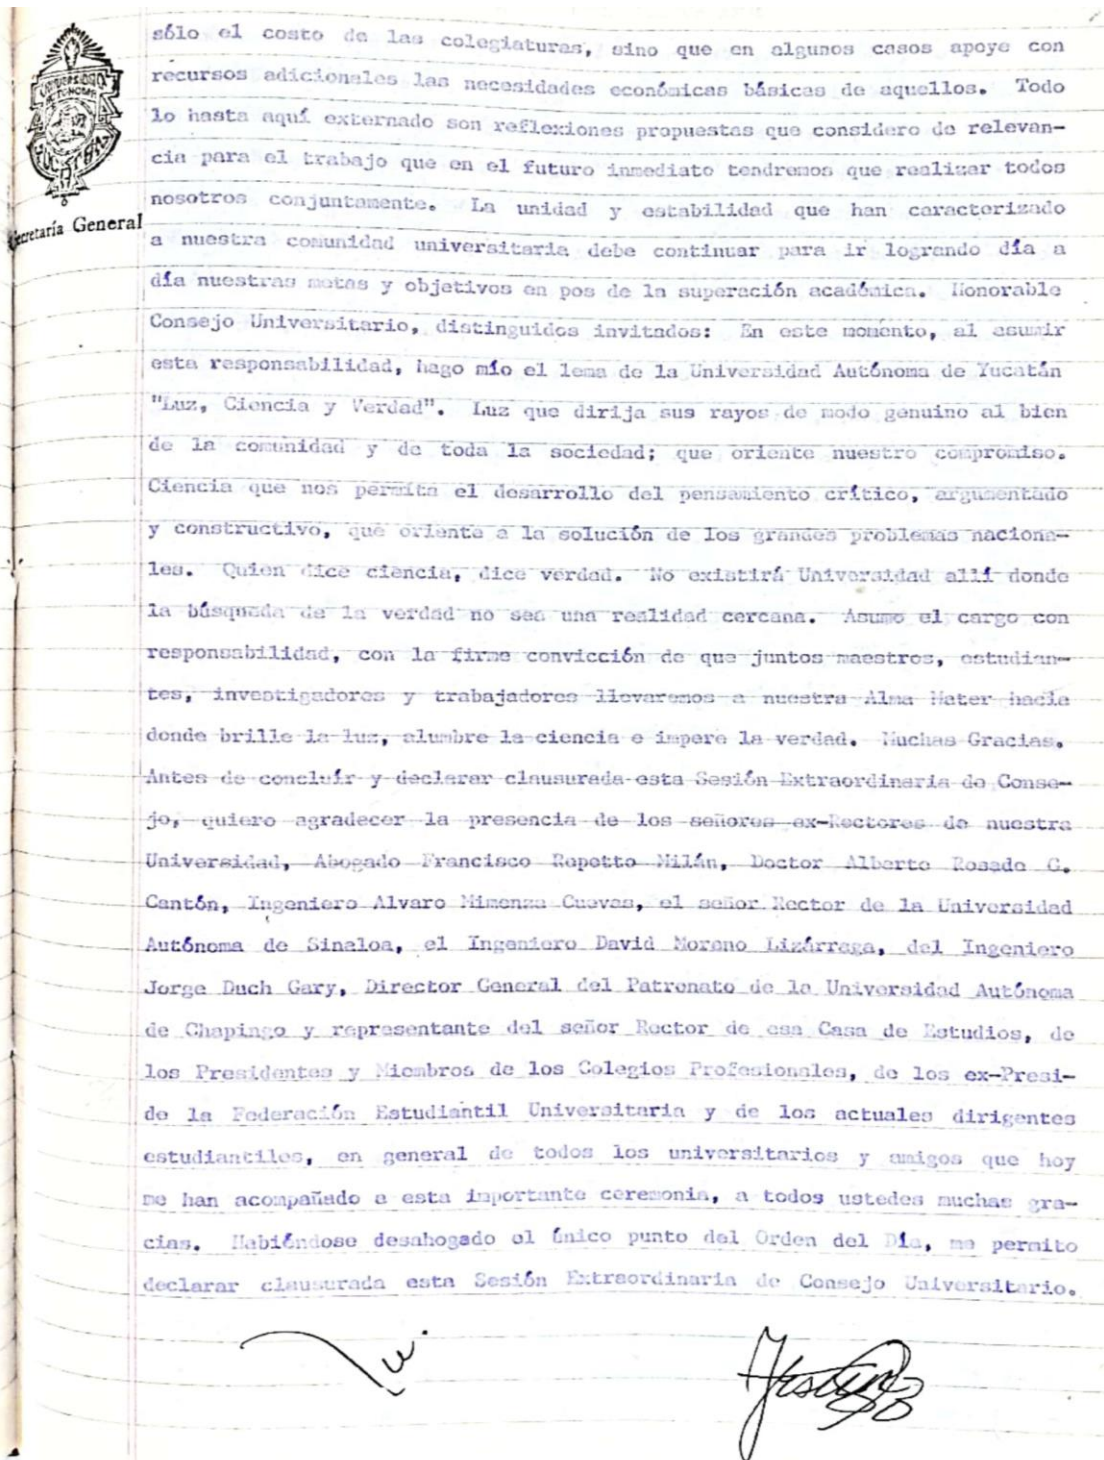 sólo el costo de las colegiaturas, sino que en algunos casos apoye con
recursos adicionales las necesidades económicas básicas de aquellos. Todo
lo hasta aquí externado son reflexiones propuestas que considero de relevan-
cia para el trabajo que en el futuro inmediato tendremos que realizar todos
nosotros conjuntamente. La unidad y estabilidad que han caracterizado
Secretaría General
a nuestra comunidad universitaria debe continuar para ir logrando día a
día nuestras metas y objetivos en pos de la superación académica. Honorable
Consejo Universitario, distinguidos invitados: En este momento, al asumir
esta responsabilidad, hago mío el lema de la Universidad Autónoma de Yucatán
"Luz, Ciencia y Verdad". Luz que dirija sus rayos de modo genuino al bien
de la comunidad y de toda la sociedad; que oriente nuestro compromiso.
Ciencia que nos permita el desarrollo del pensamiento crítico, argumentado
y constructivo, que oriente a la solución de los grandes problemas naciona-
les. Quien dice ciencia, dice verdad. No existirá Universidad allí donde
la búsqueda de la verdad no sea una realidad cercana. Asumo el cargo con
responsabilidad, con la firme convicción de que juntos maestros, estudian-
tes, investigadores y trabajadores llevaremos a nuestra Alma Mater hacia
donde brille la luz, alumbre la ciencia e impere la verdad. Muchas Gracias.
Antes de concluír y declarar clausurada esta Sesión Extraordinaria de Conse-
jo, quiero agradecer la presencia de los señores ex-Rectores de nuestra
Universidad, Abogado Francisco Repetto Milán, Doctor Alberto Rosado G.
Cantón, Ingeniero Alvaro Mimenza Cuevas, el señor Rector de la Universidad
Autónoma de Sinaloa, el Ingeniero David Moreno Lizárraga, del Ingeniero
Jorge Duch Gary, Director General del Patronato de la Universidad Autónoma
de Chapingo y representante del señor Rector de esa Casa de Estudios, de
los Presidentes y Miembros de los Colegios Profesionales, de los ex-Presi-
de la Federación Estudiantil Universitaria y de los actuales dirigentes
estudiantiles, en general de todos los universitarios y amigos que hoy
me han acompañado a esta importante ceremonia, a todos ustedes muchas gra-
cias. Habiéndose desahogado el único punto del Orden del Día, me permito
declarar clausurada esta Sesión Extraordinaria de Consejo Universitario.